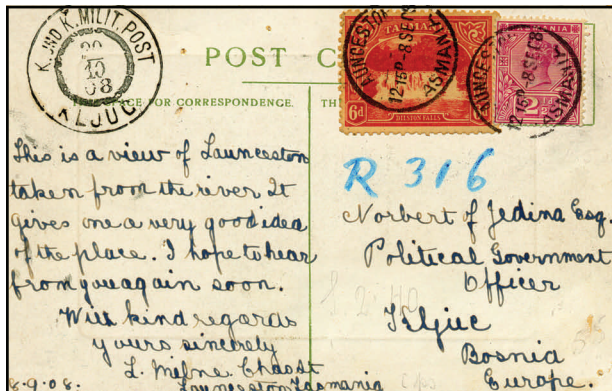 K. UND K. MILIT. POST
20
10
08
KLJUČ
POST C
SPACE FOR CORRESPONDENCE.
TH
TASMANIA
6d
DILSTON FALLS
LAUNCESTON
12 15 P - 8 SE 08
TASMANIA
TASMANIA
LAUNCESTON
12 15 P - 8 SE 08
TASMANIA
This is a view of Launceston
taken from the river It
gives one a very good idea
of the place. I hope to hear
from you again soon.
With kind regards
yours sincerely
L. Milne. Chas St
8.9.08. Launceston Tasmania
R 316
Norbert of Jedina Esq.
Political Government
Officer
Kljuc
Bosnia
Europe.